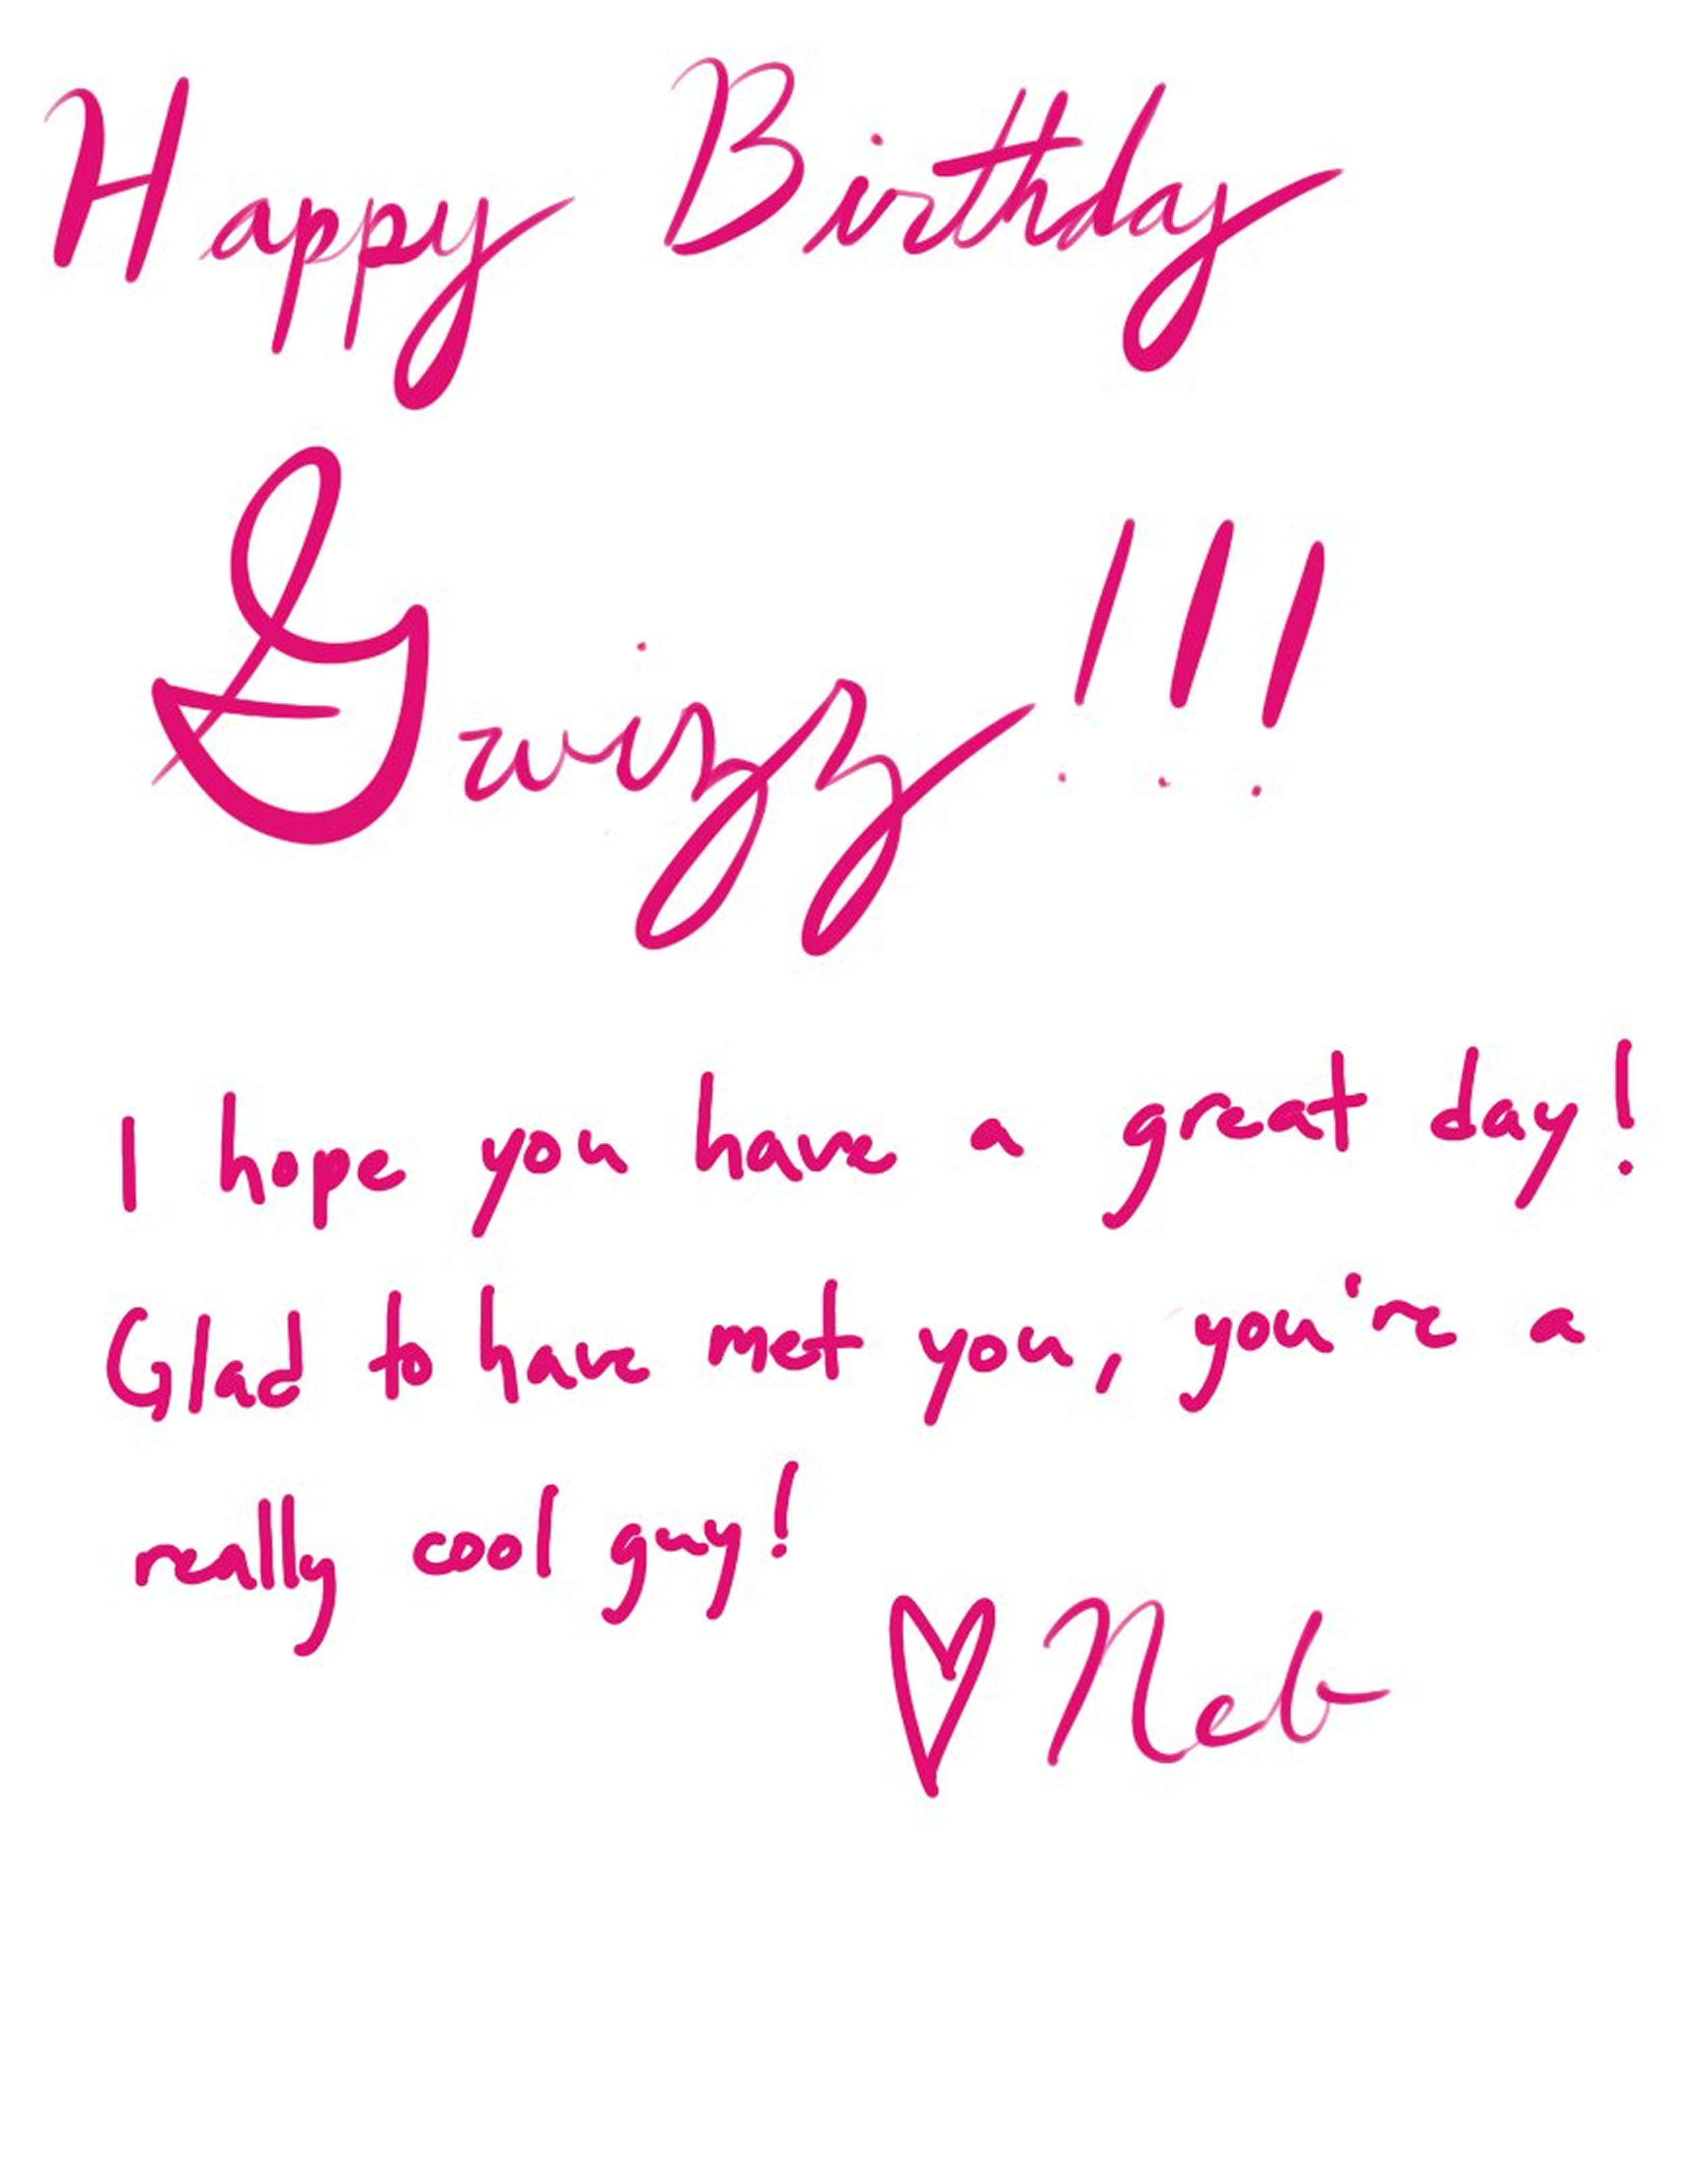 Happy Birthday
Gwizz!!!
I hope you have a great day!
Glad to have met you, you're a
really cool guy!
♡ Neb